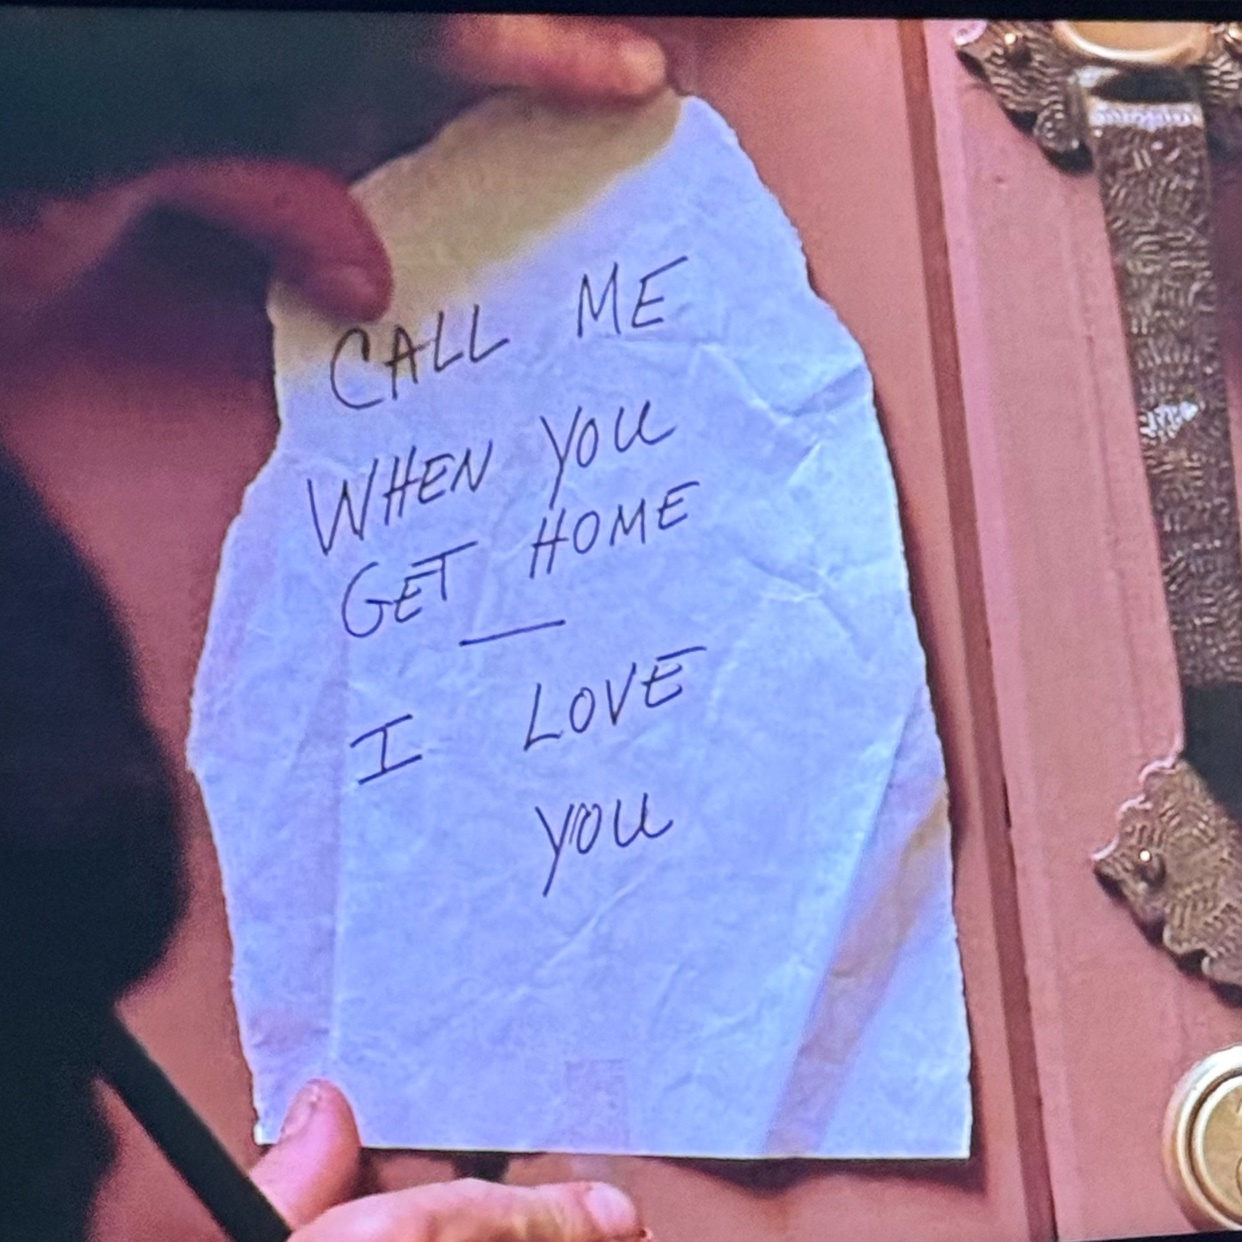 CALL ME
WHEN YOU
GET HOME
—
I LOVE
YOU